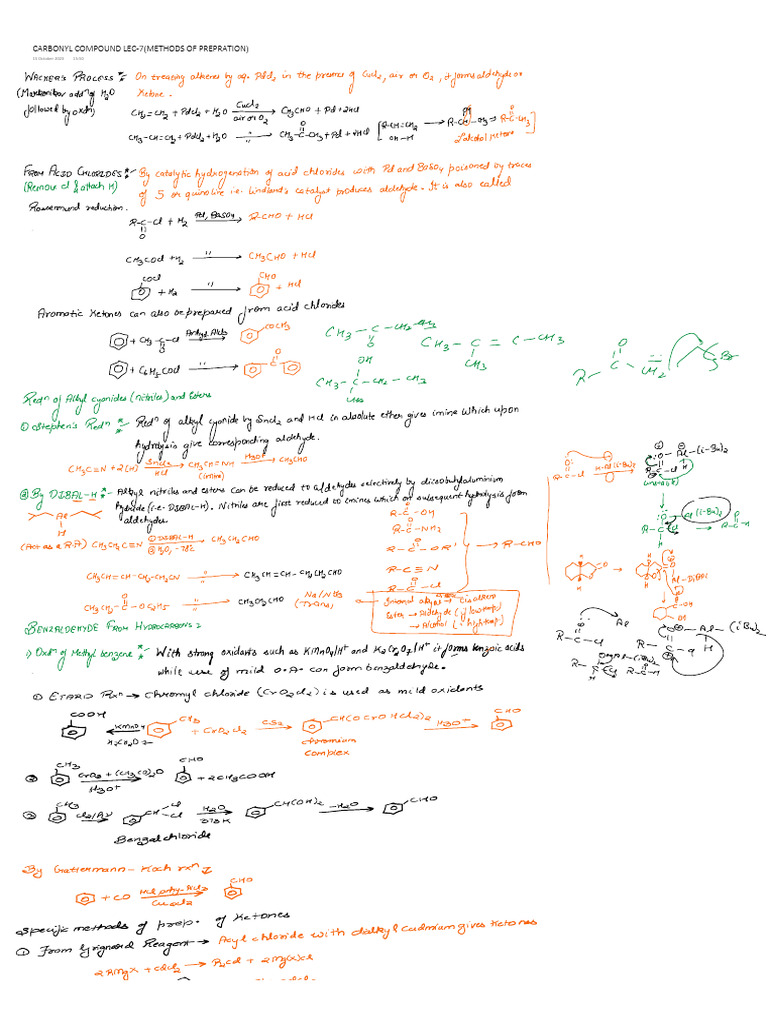 CARBONYL COMPOUND LEC-7(METHODS OF PREPRATION)
WACKER'S PROCESS :- On treating alkenes by aq. PdCl2 in the presence of CuCl2, air or O2, it forms aldehyde or
(Markonikov addn of H2O Ketone.
followed by oxdn)
CH2=CH2 + PdCl2 + H2O CuCl2 air or O2 → CH3CHO + Pd + 2HCl
CH3-CH=CH2 + PdCl2 + H2O '' → CH3-C-CH3 + Pd + 2HCl
O
R-CH=CH2 OH-H → R-CH-CH3 → R-C-CH3
FROM ACID CHLORIDES :- By catalytic hydrogenation of acid chlorides with Pd and BaSO4 poisoned by traces
(Remove Cl & attach H) of S or quinoline i.e. Lindlar's catalyst produces aldehyde. It is also called
Rosenmund reduction.
R-C-Cl + H2 Pd, BaSO4 → R-CHO + HCl
O
CH3COCl + H2 '' → CH3CHO + HCl
COCl + H2 '' → CHO + HCl
Aromatic Ketones can also be prepared from acid chlorides
+ CH3-C-Cl Anhyd. AlCl3 → COCH3
O
+ C6H5COCl '' → C
O
CH3-C-CH2-CH3
O
OH
CH3-C-CH2-CH3
CH3-C=C-CH3
CH3
R-C-CH2
O
Redn of Alkyl cyanides (nitriles) and Esters
① Stephen's Redn :- Redn of alkyl cyanide by SnCl2 and HCl in absolute ether gives imine which upon
hydrolysis give corresponding aldehyde.
CH3C≡N + 2(H) SnCl2 HCl → CH3CH=NH H3O+ → CH3CHO
(imine)
② By DIBAL-H :- Alkyl nitriles and esters can be reduced to aldehydes selectively by diisobutylaluminium
hydride (i.e. DIBAL-H). Nitriles are first reduced to imines which on subsequent hydrolysis form
aldehydes.
Al
H
(Act as a R.A) CH3CH2C≡N ① DIBAL-H ② H2O, -78C → CH3CH2CHO
CH3CH=CH-CH2-CH2CN '' → CH3CH=CH-CH2CH2CHO
CH3CH2-C-O C2H5 '' → CH3CH2CHO
O
Na/NH3
(Trans)
R-C-OH
R-C-NH2
R-C-OR'
R-C≡N
R-C-Cl
→ R-CHO
Ester → Aldehyde (low temp)
→ Alcohol (high temp)
BENZALDEHYDE FROM HYDROCARBONS :
1) Oxdn of Methyl benzene :- With strong oxidants such as KMnO4/H+ and K2Cr2O7/H+ it forms benzoic acids
while use of mild O.A. can form benzaldehyde.
① ETARD Rxn → Chromyl chloride (CrO2Cl2) is used as mild oxidants
COOH ← KMnO4 K2Cr2O7 CH3 + CrO2Cl2 CS2 → CH(OCrOHCl2)2 H3O+ → CHO
Chromium
Complex
② CH3 CrO3 + (CH3CO)2O H3O+ → CHO + 2CH3COOH
③ CH3 Cl2/hν → CH Cl Cl H2O 373K → CH(OH)2 -H2O → CHO
Benzalchloride
By Gattermann-Koch rxn
+ CO HCl, anhy. AlCl3 CuCl2 → CHO
Specific methods of prep. of Ketones
① From Grignard Reagent → Acyl chloride with dialkyl cadmium gives Ketones
2RMgX + CdCl2 → R2Cd + 2Mg(X)Cl